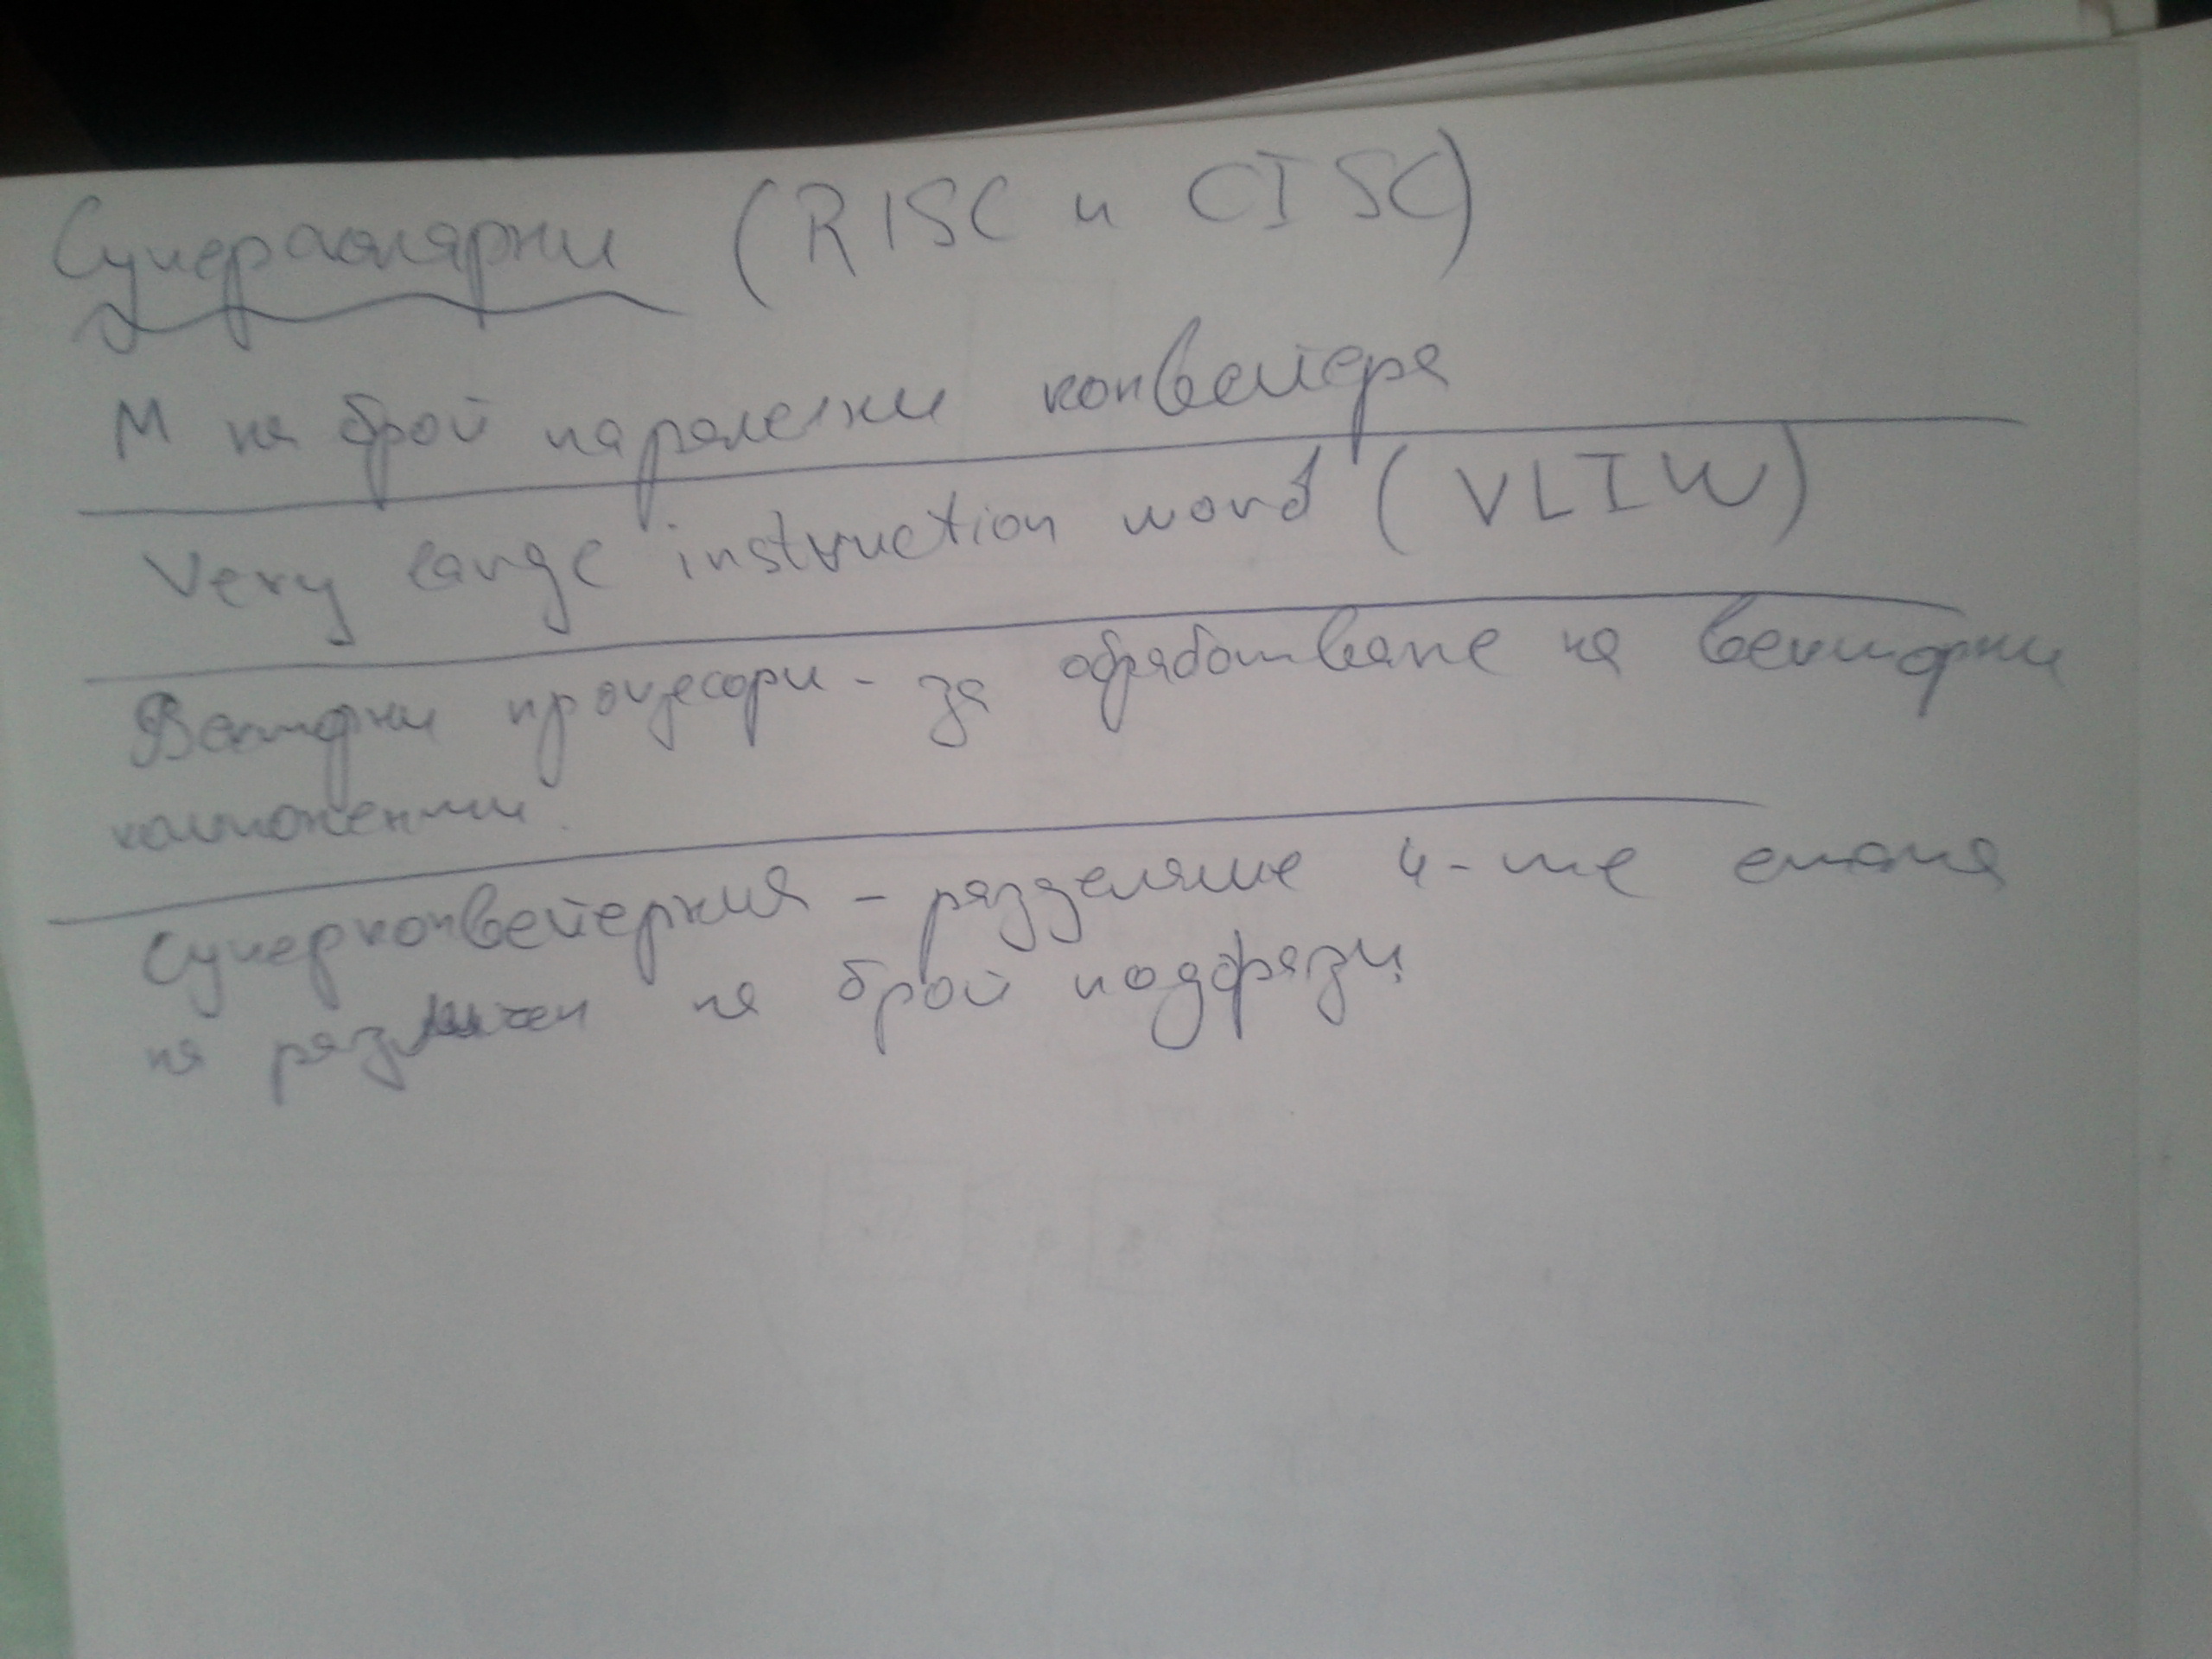 Суперскалярни (RISC и CISC)
М на брой паралелни конвейера
Very large instruction word (VLIW)
Векторни процесори - за обработване на векторни
компоненти.
Суперконвейерния - разделяме 4-те етапа
на различен на брой подфази